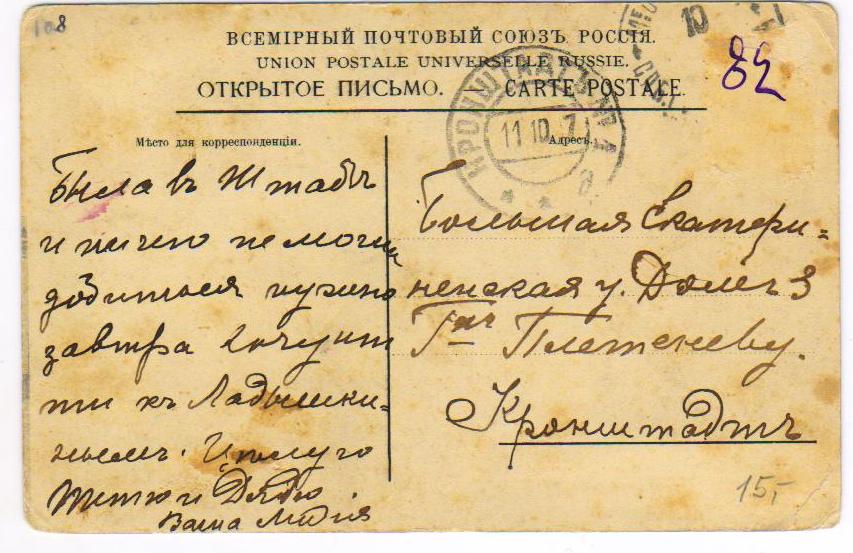 108
ВСЕМІРНЫЙ ПОЧТОВЫЙ СОЮЗЪ. РОССІЯ.
UNION POSTALE UNIVERSELLE RUSSIE.
ОТКРЫТОЕ ПИСЬМО. — CARTE POSTALE.
82
10
КРОНШТАДТЪ № 1
11 10 7
Мѣсто для корреспонденціи.
Адресъ.
Была въ Штабѣ
и ничего не могли
добиться нужно
завтра
къ Ладышки-
нымъ.
Тетю и Дядю
Ваша Лидія
Большая Екатери-
ненская у. Домъ 3
Плетеневу.
Кронштадтъ
15,-